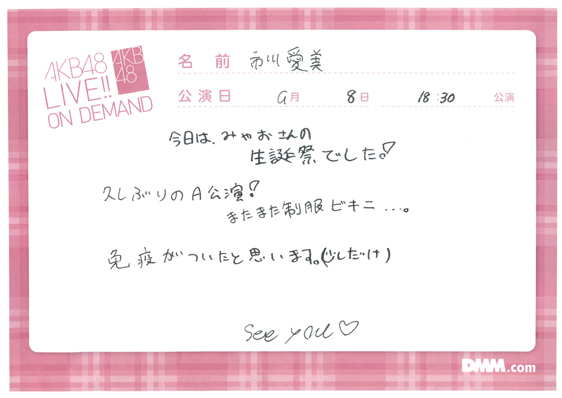 AKB48
LIVE!!
ON DEMAND
AKB
48
名前 市川愛美
公演日 9月 8日 18:30 公演
今日は、みゃおさんの
生誕祭でした。!
久しぶりのA公演!
またまた制服ビキニ…。
免疫がついたと思います。(少しだけ)
see you♡
DMM.com